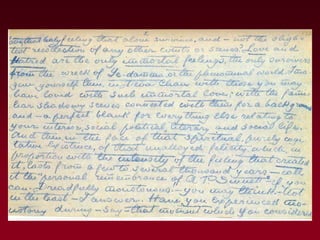 feeling that alone survives, and – not the slight-
est recollection of any other events or scenes. Love and
hatred are the only immortal feelings, the only survivors
from the wreck of Ye-damma or the phenomenal world. Ima
gine yourself then, in Deva-Chan with those you may
have loved with such immortal love; with the fami
liar shadowy scenes connected with them for a background
and – a perfect blank for everything else relating to
your interior, social, political, literary, and social life.
And then, in the face of that spiritual, purely cogi-
tative existence, of that unalloyed felicity which, in
proportion with the intensity of the feelings that created
it, lasts from a few to several thousand years – call
it the "personal remembrance of A. P. Sinnett" – if you
can. Dreadfully monotonous! – you may think. – Not
in the least – I answer. Have you experienced mo-
notony during – say – that moment which you considered